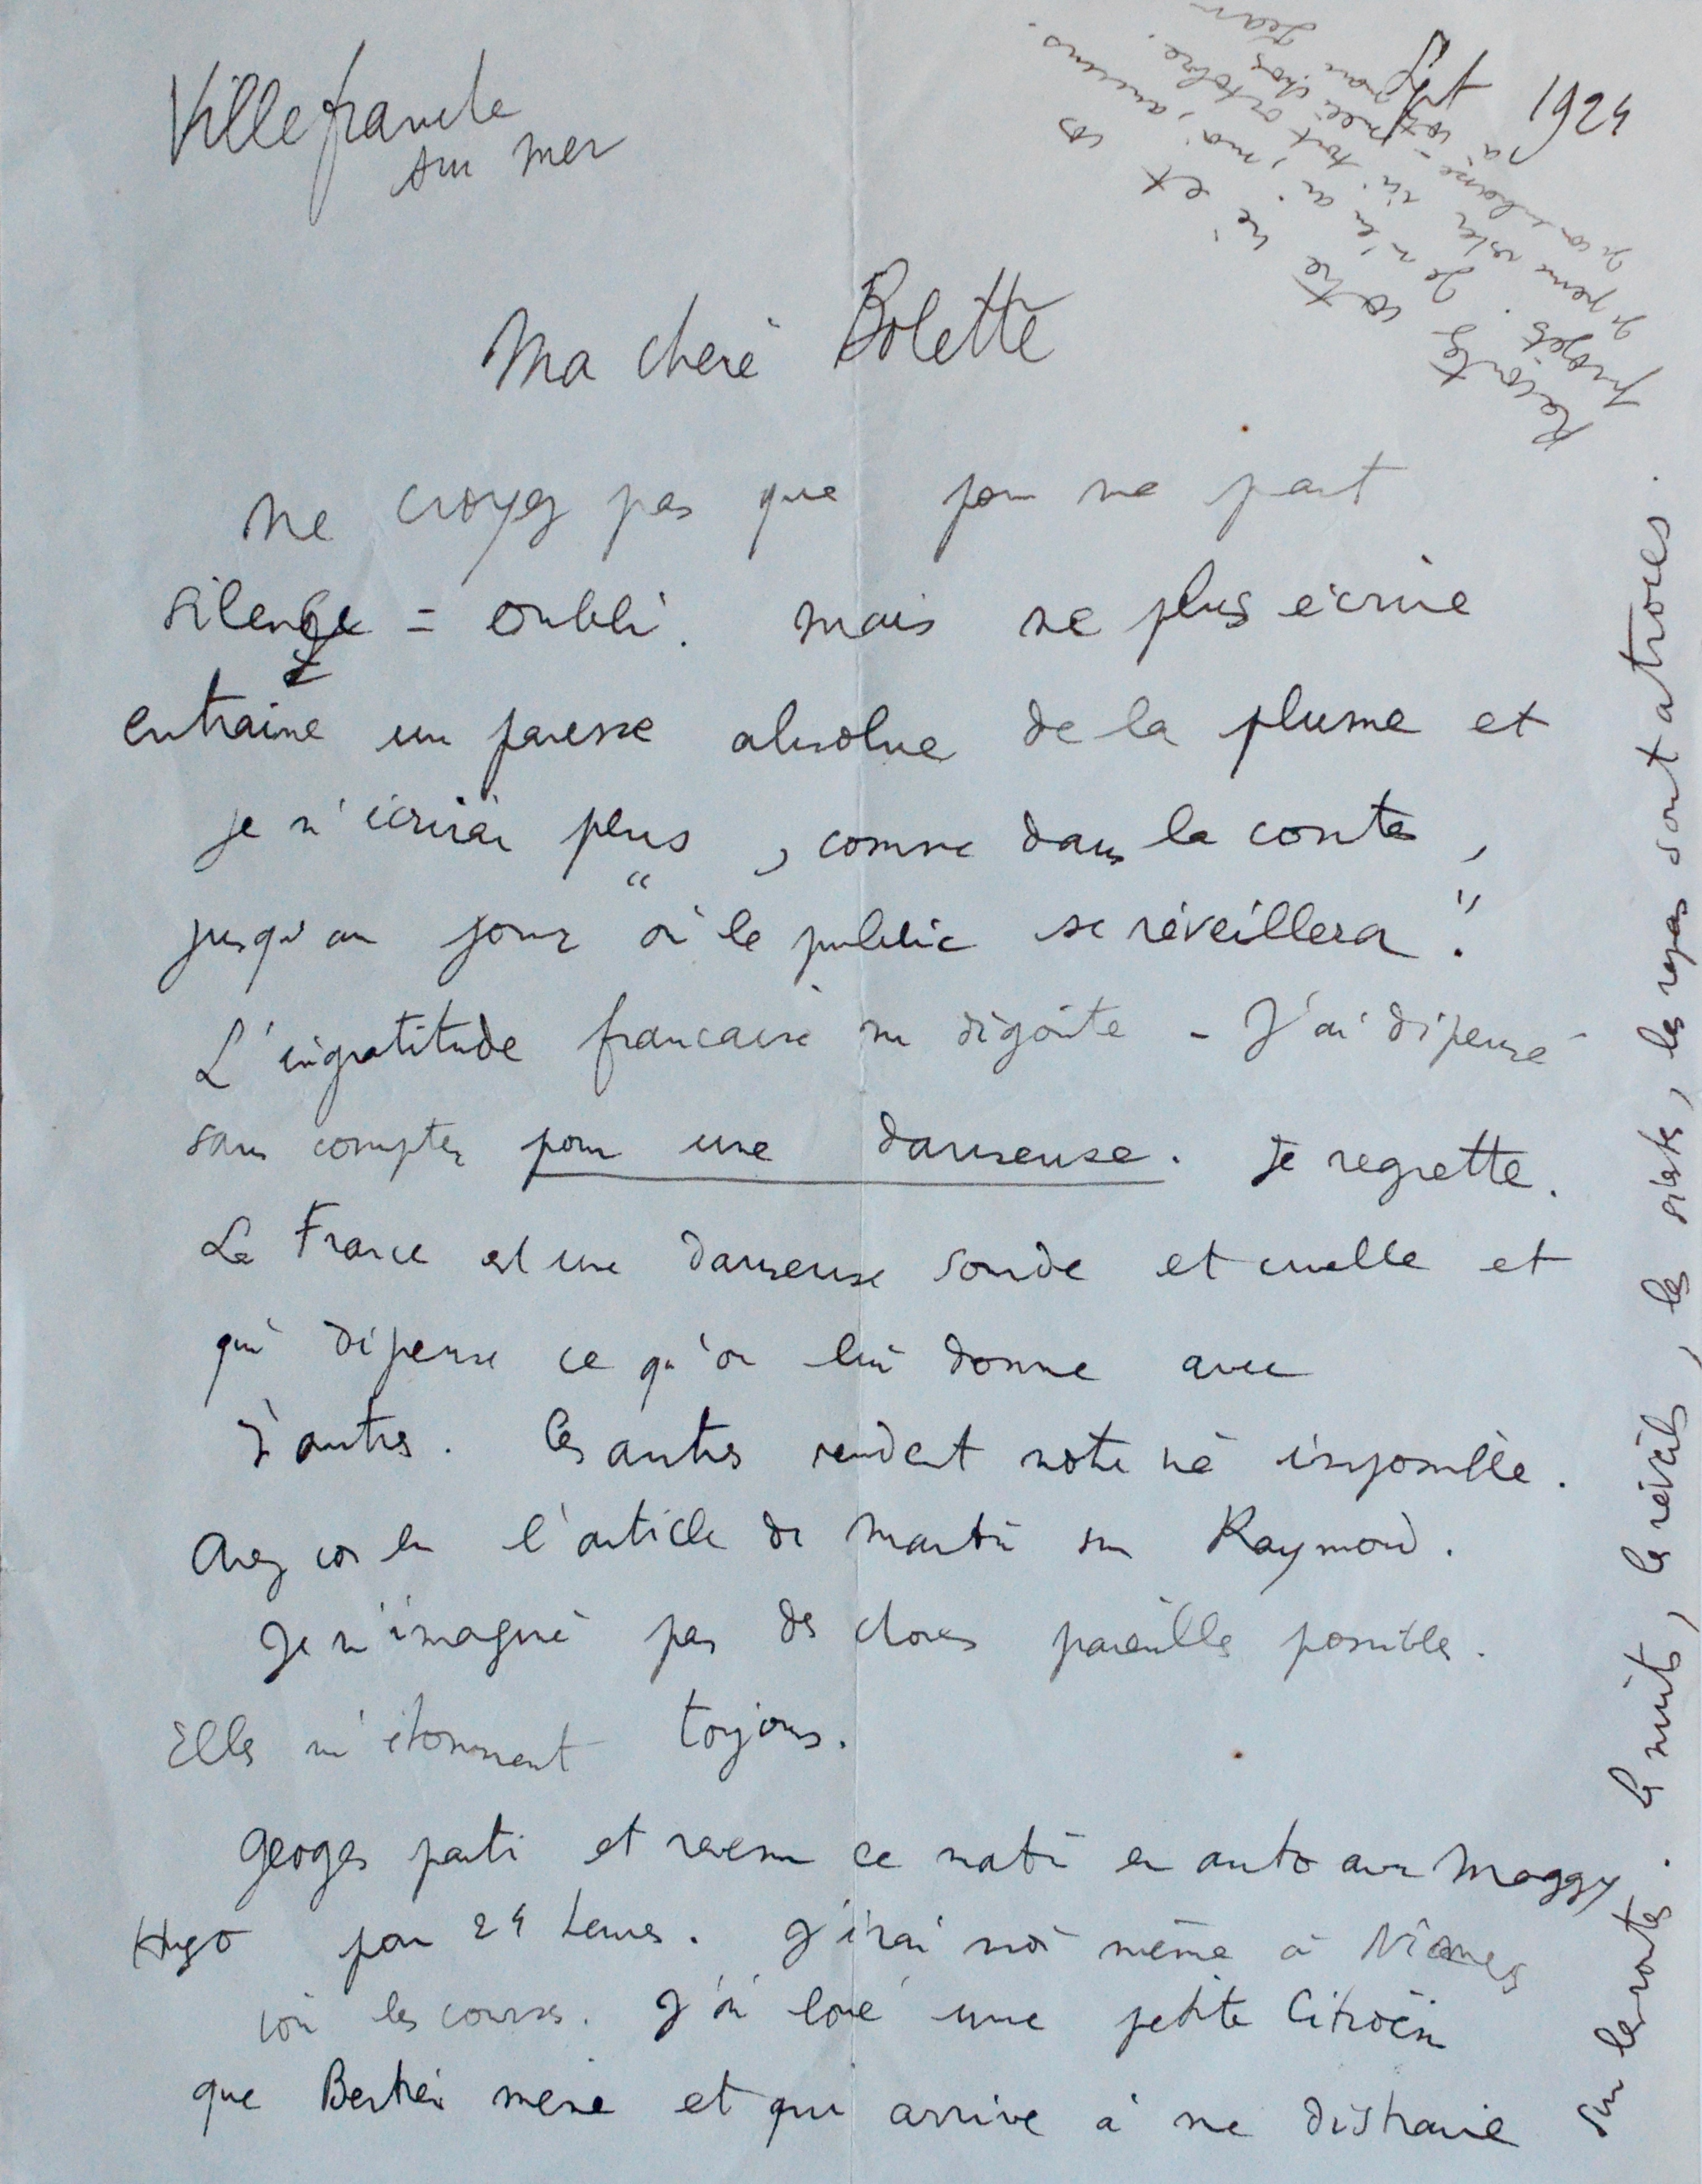 Villefranche
sur mer
Sept 1924
Ma chère Bolette
Ne croyez pas que pour ma part
silence = oubli. Mais ne plus écrire
entraine une paresse absolue de la plume et
je n'écrirai plus, comme dans le conte,
jusqu'au jour "où le public se réveillera".
L'ingratitude francaise me dégoûte - J'ai dépensé
sans compter pour une danseuse. Je regrette.
La France est une danseuse sourde et cruelle et
qui dépense ce qu'on lui donne avec
d'autres. Ces autres rendent notre vie impossible.
Avez vous lu l'article de Martin sur Raymond.
Je n'imagine pas des choses pareilles possibles.
Elles m'étonnent toujours.
Georges parti et revenu ce matin en auto avec Maggy
Hugo pour 24 heures. J'irai moi même à Nimes
voir les courses. J'ai loué une petite Citroën
que mène et qui arrive à me distraire
sur les routes. Les nuits, les réveils, les siestes, les repas sont atroces.
Racontez votre vie et vos
projets. Je n'en ai, moi, aucuns.
Je pense rester ici tout octobre.
Je vous embrasse
Jean